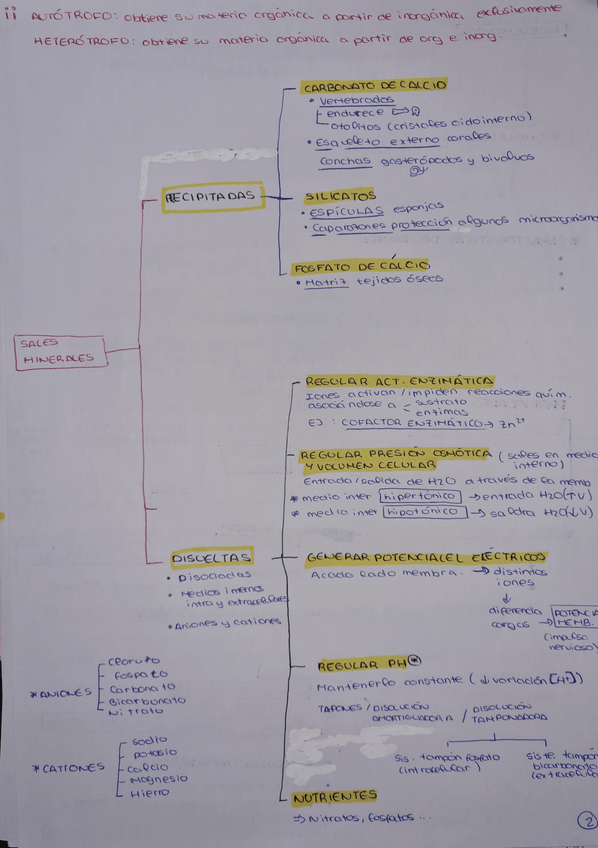 ¡¡ AUTÓTROFO: obtiene su materia orgánica a partir de inorgánica exclusivamente
HETERÓTROFO: obtiene su materia orgánica a partir de org e inorg.
CARBONATO DE CALCIO
• Vertebrados
endurece
otolitos (cristales oido interno)
• Esqueleto externo corales
Conchas gasterópodos y bivalvos
PRECIPITADAS
SILICATOS
• ESPÍCULAS esponjas
• Caparazones protección algunos microorganismo
FOSFATO DE CÁLCIO
• Matriz tejidos óseos
SALES
MINERALES
REGULAR ACT. ENZIMÁTICA
Iones activan/impiden reacciones quím.
asociándose a < sustrato
enzimas
EJ: COFACTOR ENZIMÁTICO → Zn²⁺
REGULAR PRESIÓN OSMÓTICA (sales en medio
Y VOLUMEN CELULAR interno)
Entrada/salida de H2O a través de la memb
* medio inter hipertónico → entrada H2O(↑V)
* medio inter hipotónico → salida H2O(↓V)
DISUELTAS
• Disociadas
• Medios internos
intra y extracelulares
• Aniones y cationes
GENERAR POTENCIALEL ELÉCTRICOS
Acada lado membra. → distintos
iones
↓
diferencia
cargas → POTENCIA
MEMB.
(impulso
nervioso)
REGULAR PH*
Mantenerlo constante (↓ variación [H+])
TAPONES / DISOLUCIÓN AMORTIGUADORA / DISOLUCIÓN TAMPONADORA
sis. tampón fosfato
(intracelular)
siste. tampón
bicarbonato
(extracelula
* ANIONES
Cloruro
Fosfato
Carbonato
Bicarbonato
Nitrato
* CATIONES
Sodio
potasio
Calcio
Magnesio
Hierro
NUTRIENTES
⇒ Nitratos, fosfatos...
2